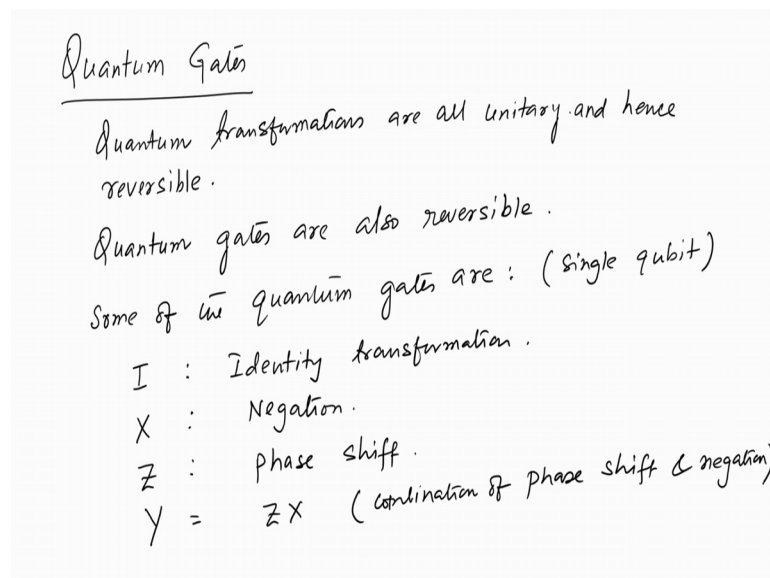 Quantum Gates
Quantum transformations are all unitary and hence
reversible.
Quantum gates are also reversible.
Some of the quantum gates are: (single qubit)
I : Identity transformation.
X : Negation.
Z : Phase shift.
Y = ZX (combination of phase shift & negation)